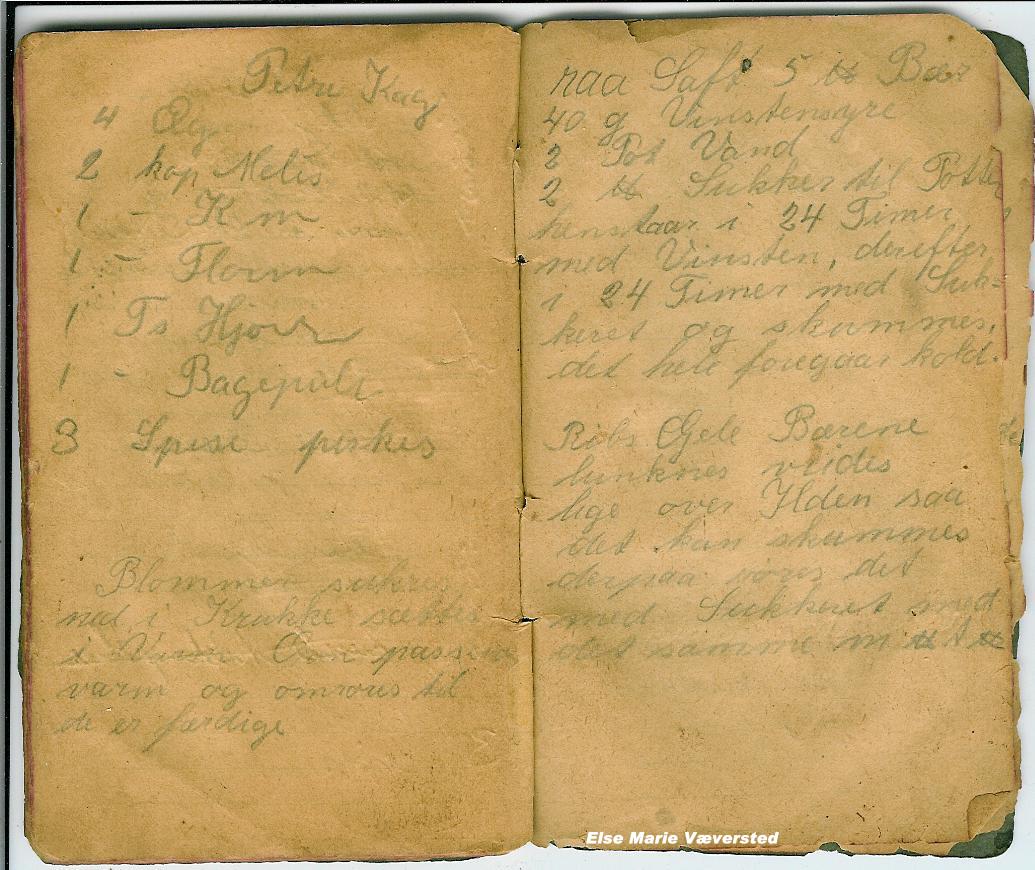 Petru Kag
4 Æg
2 kop Melis
1 - K m
1 - Florm
1 Ts Hjor
1 - Bagepulv
3 Spise piskes
Blommer sukres
ned i Krukke sættes
i Ovn passe
varm og omrøres til
de er færdige
raa Saft 5 ℔ Bær
40 g Vinstensyre
2 Pot Vand
2 ℔ Sukker til Potten
henstaar i 24 Timer
med Vinsten, derefter
i 24 Timer med Suk-
keret og skummes,
det hele foregaar kold.
Ribs Gele Bærene
lunknes vrides
lige over Ilden saa
det kan skummes
derpaa røres det
med Sukkeret med
det samme ℔ t ℔
Else Marie Væversted